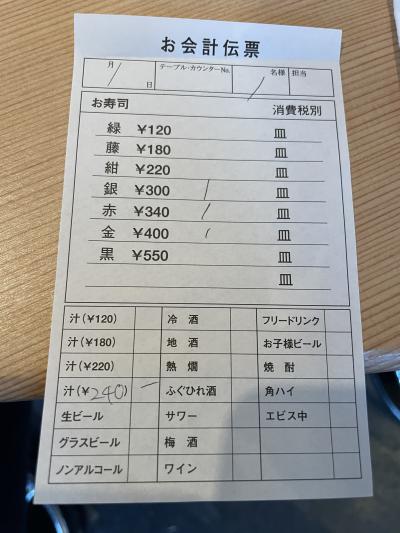 お会計伝票
月 / 日 テーブル・カウンターNo. / 名様 担当
お寿司 消費税別
緑 ¥120 皿
藤 ¥180 皿
紺 ¥220 皿
銀 ¥300 / 皿
赤 ¥340 / 皿
金 ¥400 / 皿
黒 ¥550 皿
皿
汁(¥120) 冷酒 フリードリンク
汁(¥180) 地酒 お子様ビール
汁(¥220) 熱燗 焼酎
汁(¥240) 一 ふぐひれ酒 角ハイ
生ビール サワー エビス中
グラスビール 梅酒
ノンアルコール ワイン